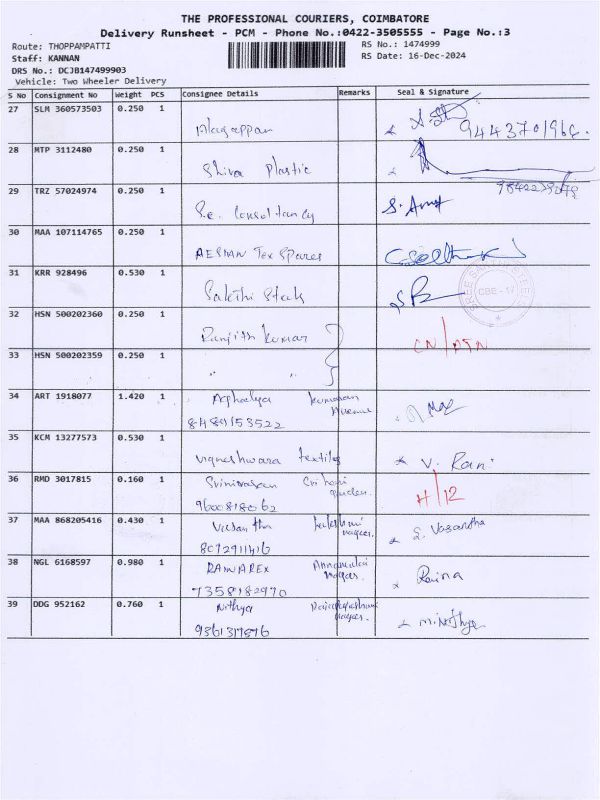 THE PROFESSIONAL COURIERS, COIMBATORE
Delivery Runsheet - PCM - Phone No.:0422-3505555 - Page No.:3
Route: THOPPAMPATTI
RS No.: 1474999
Staff: KANNAN
RS Date: 16-Dec-2024
DRS No.: DCJB147499903
Vehicle: Two Wheeler Delivery
S No Consignment No Weight PCS Consignee Details Remarks Seal & Signature
27 SLM 360573503 0.250 1
Alagappan 9443701966
28 MTP 3112480 0.250 1
Shiva Plastic
29 TRZ 57024974 0.250 1
S.e. Consultancy
30 MAA 107114765 0.250 1
AESHAN Tex Spares
31 KRR 928496 0.530 1
Sakthi Steels
SREE SAKTHI STEELS
CBE - 17
32 HSN 500202360 0.250 1
Ranjith Kumar
33 HSN 500202359 0.250 1
" "
34 ART 1918077 1.420 1
8489153522
35 KCM 13277573 0.530 1
Vigneshwara textiles V. Rani
36 RMD 3017815 0.160 1 Srinivasan
9600818062
H/12
37 MAA 868205416 0.430 1 Vasantha nagar. S. Vasantha
8072911416
38 NGL 6168597 0.980 1 Annamalai nagar.
7358182970
39 DDG 952162 0.760 1 Nithya nagar. M. Nithya
9361317876